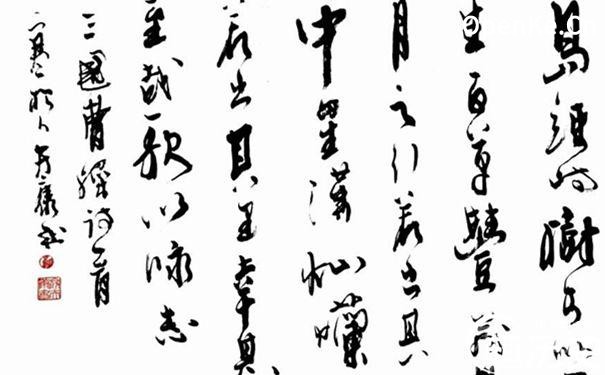 島竦峙樹木
生百草豐茂
月之行若出其
中星漢灿爛
若出其里幸甚
至哉歌以咏志
三國曹操詩一首